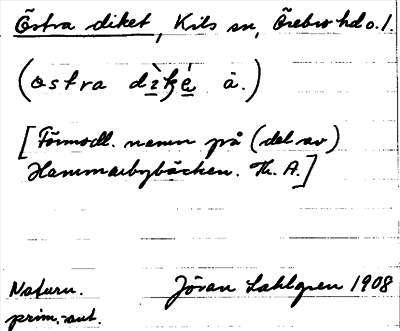 Östra diket, Kils sn, Örebro hd o. l.
(ostra dìʒé à.)
[Förmodl. namn på (del av)
Hammarbybäcken. Th. A.]
Naturn. Jöran Sahlgren 1908
prim.-ant.